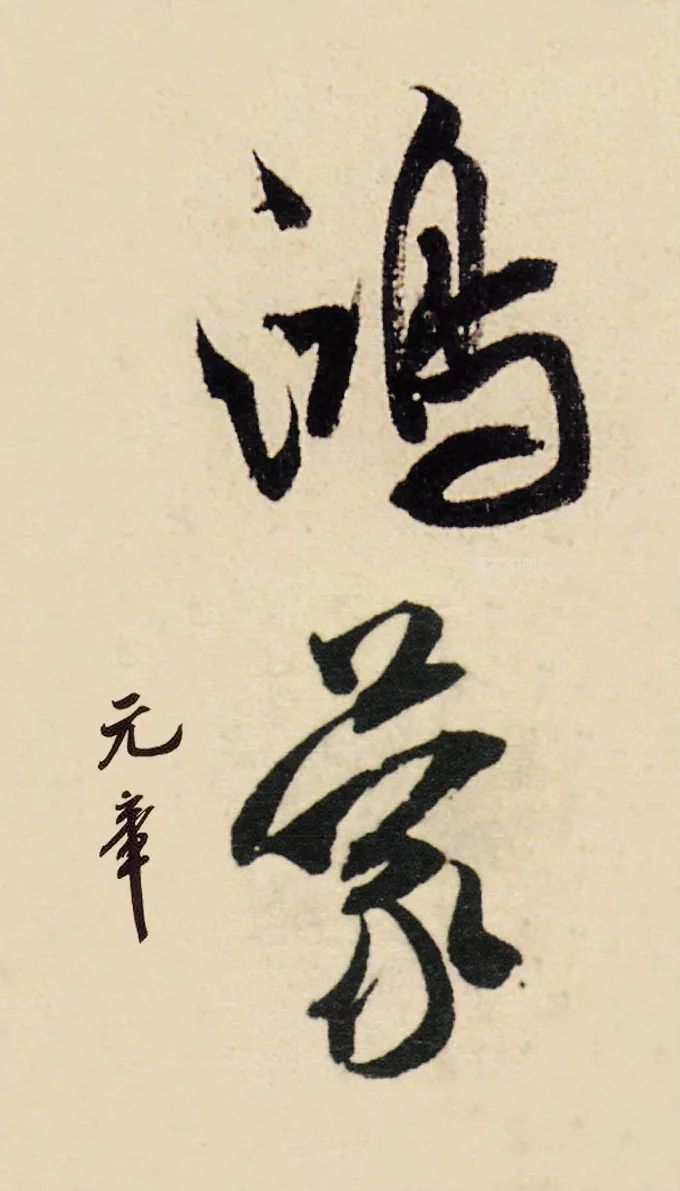 鸿蒙
元章